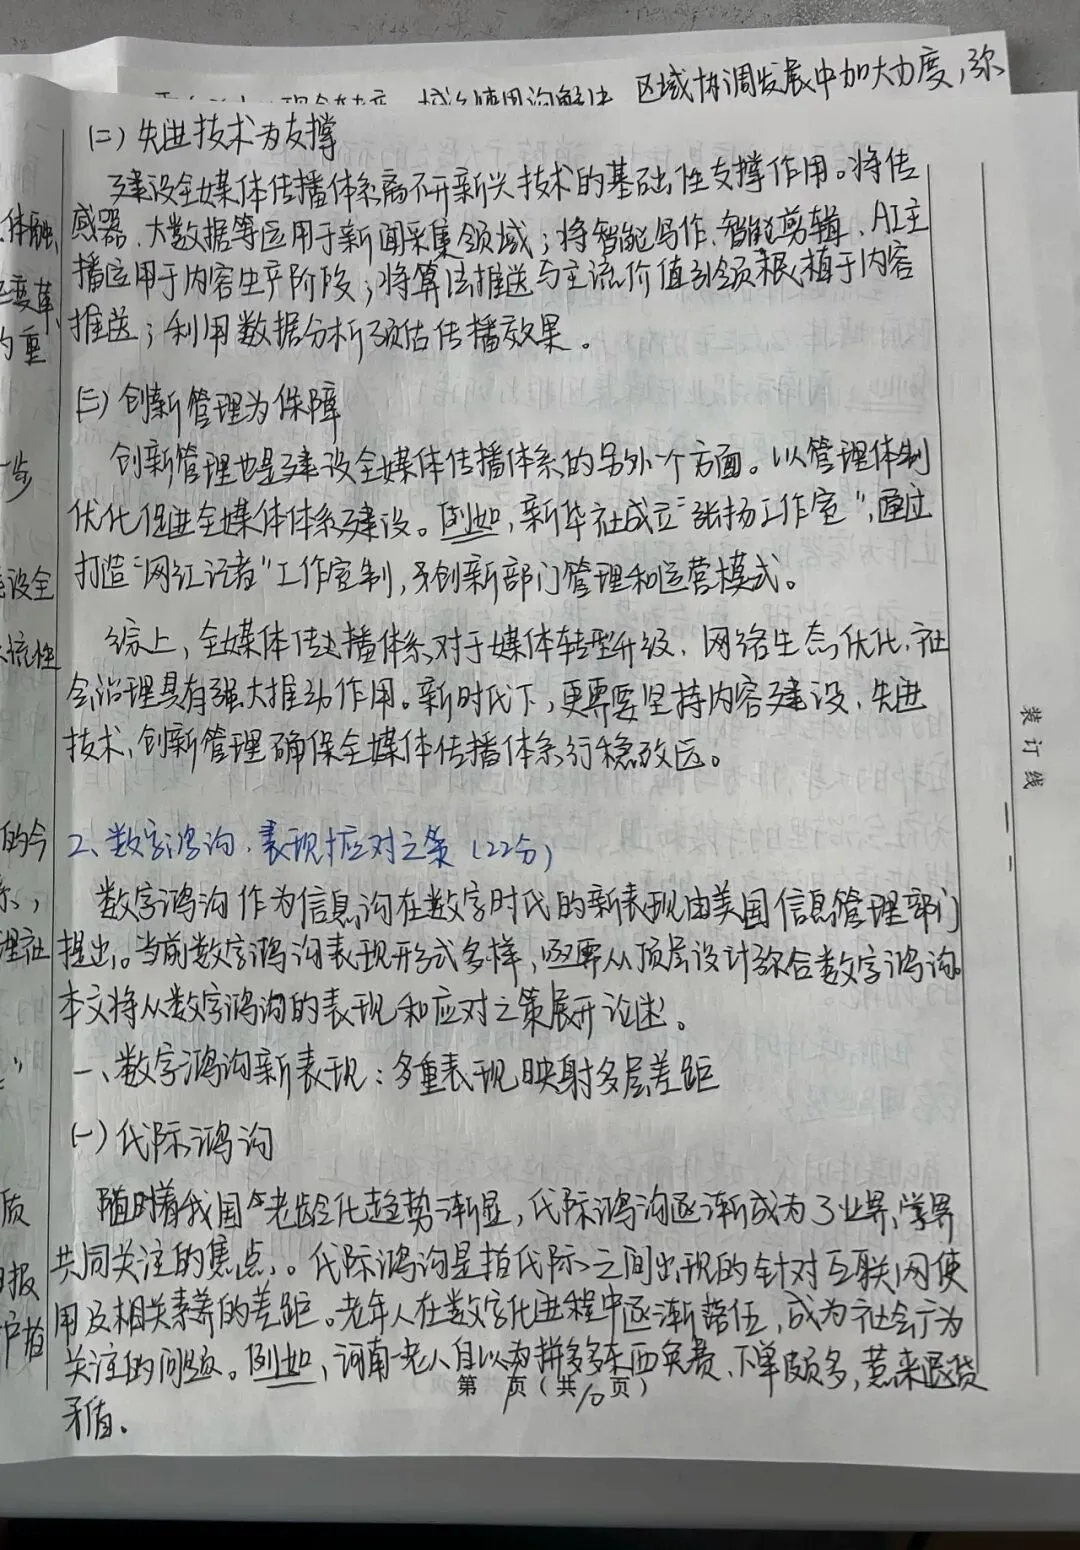 区域协调发展中加大力度,弥
(二)先进技术为支撑
建设全媒体传播体系离不开新兴技术的基础性支撑作用。将传
感器、大数据等运用于新闻采集领域;将智能写作、智能剪辑、AI主
播运用于内容生产阶段;将算法推送与主流价值引领根植于内容
推送;利用数据分析预估传播效果。
(三)创新管理为保障
创新管理也是建设全媒体传播体系的另外一个方面。以管理体制
优化促进全媒体体系建设。例如,新华社成立"张扬工作室",通过
打造"网红记者"工作室制,来创新部门管理和运营模式。
综上,全媒体传播体系对于媒体转型升级、网络生态优化、社
会治理具有强大推动作用。新时代下,更需要坚持内容建设、先进
技术、创新管理确保全媒体传播体系行稳致远。
2、数字鸿沟,表现+应对之策(22分)
数字鸿沟作为信息沟在数字时代的新表现由美国信息管理部门
提出。当前数字鸿沟表现形式多样,亟需从顶层设计弥合数字鸿沟。
本文将从数字鸿沟的表现和应对之策展开论述。
一、数字鸿沟新表现:多重表现映射多层差距
(一)代际鸿沟
随着我国老龄化趋势渐显,代际鸿沟逐渐成为了业界、学界
共同关注的焦点。代际鸿沟是指代际之间出现的针对互联网使
用及相关素养的差距。老年人在数字化进程中逐渐落伍,成为社会广为
关注的问题。例如,河南一老人自以为拼多多东西免费、下单颇多,惹来退货
矛盾。
第7页(共10页)
装订线
体融
变革
的重
步
建设全
流性
的今
系,
理社
质
报